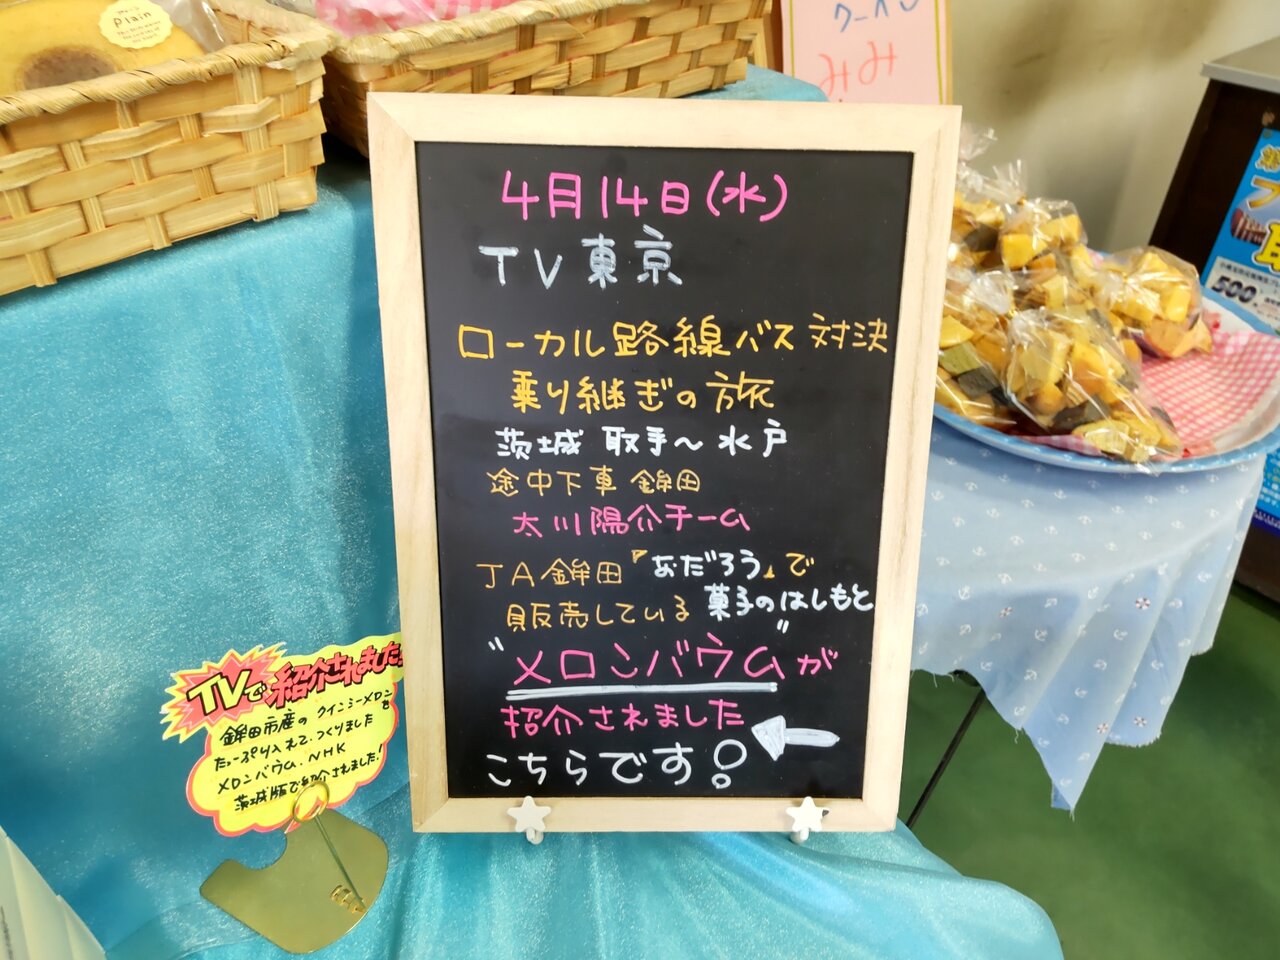 Plain
クーヘン
みみ
4月14日(水)
TV東京
ローカル路線バス対決
乗り継ぎの旅
茨城 取手～水戸
途中下車 鉾田
太川陽介チーム
JA鉾田『なだろう』で
販売している 菓子のはしもと
"メロンバウム"が
紹介されました
こちらです!
TVで紹介されました!
鉾田市産のクインシーメロンを
たっぷり入れて、つくりました
メロンバウム、NHK
茨城版で紹介されました!
500